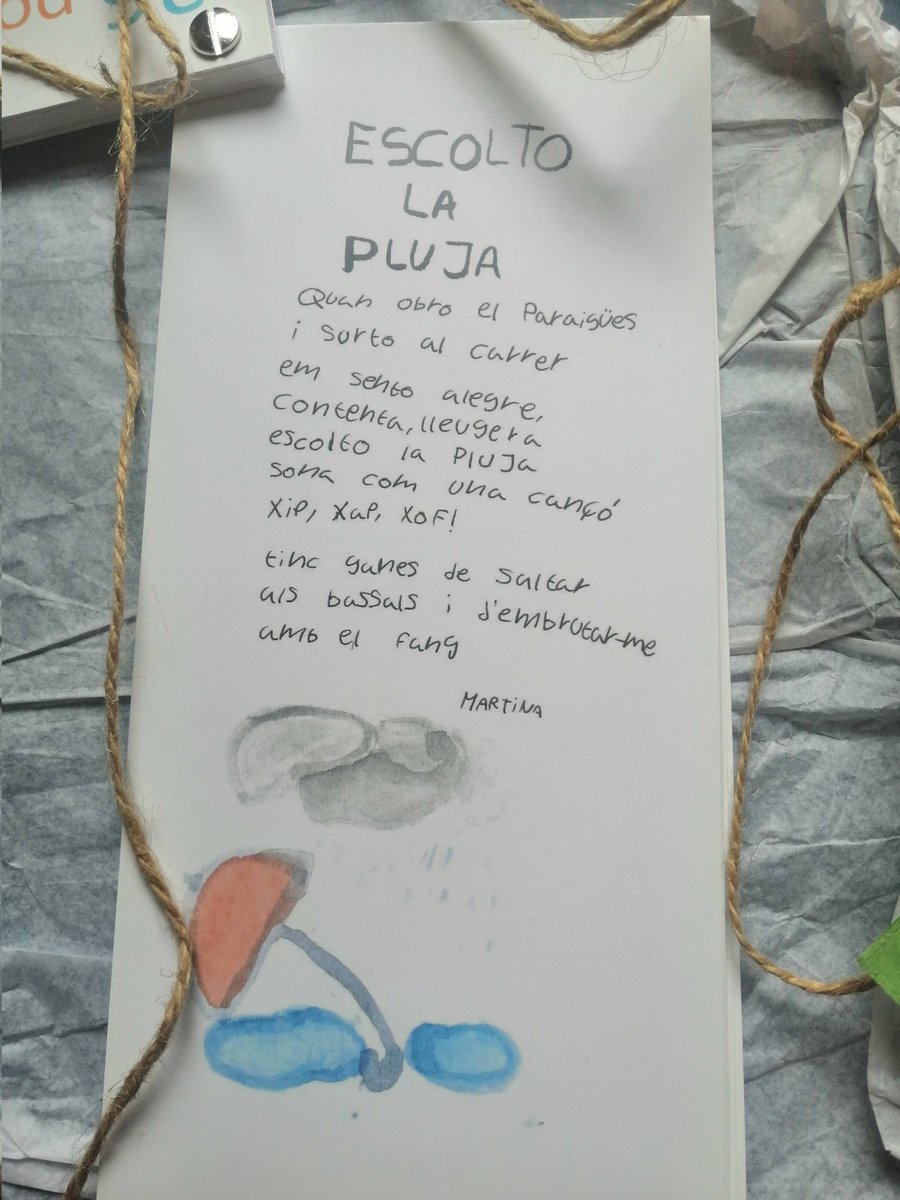 ESCOLTO
LA
PLUJA
Quan obro el Paraigües
i surto al carrer
em sento alegre,
contenta, lleugera
escolto la PluJa
sona com una cançó
XiP, XaP, XoF!
tinc ganes de saltar
als bassals i d'embrutar-me
amb el fang
MARTiNA